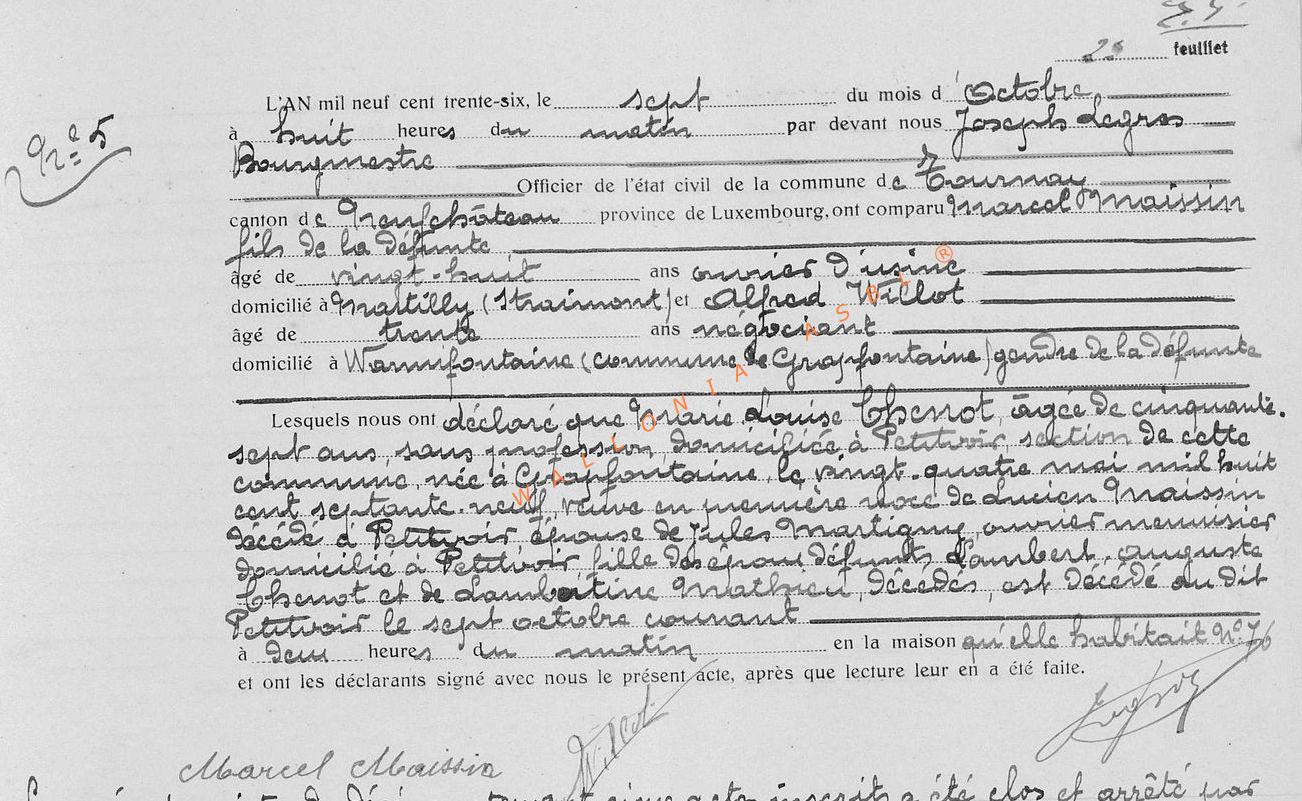 2e feuillet
L'AN mil neuf cent trente-six, le sept du mois d'Octobre
à huit heures du matin par devant nous Joseph Legros
Nº 5
Bourgmestre
Officier de l'état civil de la commune de Tournay
canton de Neufchâteau province de Luxembourg, ont comparu Marcel Maissin
fils de la défunte
âgé de vingt-huit ans ouvrier d'usine
domicilié à Martilly (Straimont) et Alfred Willot
âgé de trente ans négociant
domicilié à Warmifontaine (commune de Grapfontaine) gendre de la défunte
Lesquels nous ont déclaré que Marie Louise Thenot, âgée de cinquante-
sept ans, sans profession, domiciliée à Petitvoir, section de cette
commune, née à Grapfontaine, le vingt-quatre mai mil huit
cent septante-neuf, veuve en première noce de Lucien Maissin
décédé à Petitvoir épouse de Jules Martigny, ouvrier menuisier
domicilié à Petitvoir fille des épou défunts Lambert-auguste
Thenot et de Lambertine Mathieu, décédés, est décédé au dit
Petitvoir le sept octobre courant
à deux heures du matin en la maison qu'elle habitait Nº 76
et ont les déclarants signé avec nous le présent acte, après que lecture leur en a été faite.
Willot
Marcel Maissin
cinq acte inscrits a été clos et arrêté par
WALLONIA ASBL ®